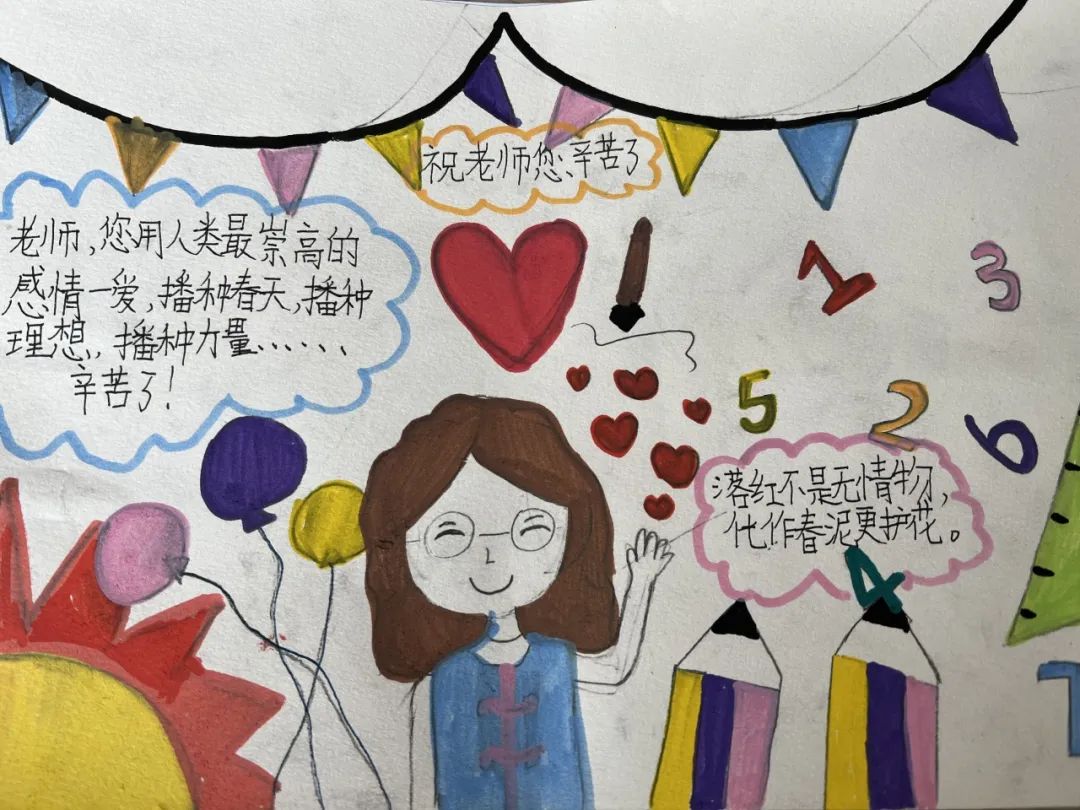 祝老师您、辛苦了
老师,您用人类最崇高的
感情一爱,播种春天,播种
理想,播种力量......
辛苦了!
1
3
5
2
6
落红不是无情物,
化作春泥更护花。
4